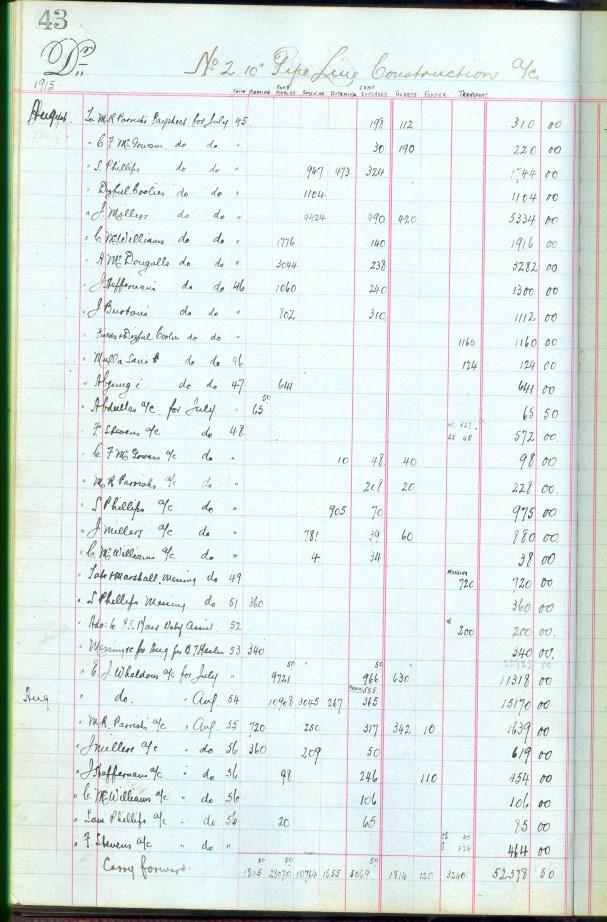 43
Dr
No 2 10" Pipe Line Construction a/c.
1915
ROAD CAMP
MAKING EXPENSES GUARDS FODDER TRANSPORT
August. To M.R. Parrishs Paysheet for July 45 198 112 310 00
" C F McGowans do do " 30 190 220 00
" S. Phillips do do " 947 473 324 1744 00
" Dizful Coolies do do " 1104 1104 00
" J. Millers do do " 4424 490 420 5334 00
" C. McWilliams do do " 1776 140 1916 00
" A McDougalls do do " 3044 238 3282 00
" J Heffernans do do 46 1060 240 1300 00
" J Burtons do do " 802 310 1112 00
" Dizful Coolies do do " 1160 1160 00
" Mulla do do 46 124 124 00
" do do 47 641 641 00
" Abdullas a/c for July " 65 50 65 50
" F Stevens a/c do 48 527 45 572 00
" C. F McGowans a/c do " 10 48 40 98 00
" M R Parrishs a/c do " 208 20 228 00.
" S Phillips a/c do " 905 70 975 00
" J Millers a/c do " 781 39 60 880 00.
" C. McWilliams a/c do " 4 34 38 00
" Marshall do 49 720 720 00
" S Phillips do 51 360 360 00
" 52 200 200 00.
" for Aug for 53 340 340 00.
" E. J Wheldons a/c for July " 9721 50 966 50 630 11318 00
Aug " do. " Aug. 54 10908 3045 267 585 365 15170 00
" M.R. Parrishs a/c " Aug. 55 720 250 317 342 10 1639 00
" J Millers a/c " do 56 360 209 50 619 00
" J Heffernans a/c " do 56 98 246 110 454 00
" C. McWilliams a/c " do 56 106 106 00
" Sam Phillips a/c " do 56 20 65 85 00
" F. Stevens a/c " do " 40 424 464 00
Carry forward 1845 50 28030 50 10764 1655 5069 50 1814 120 3240 52578 50